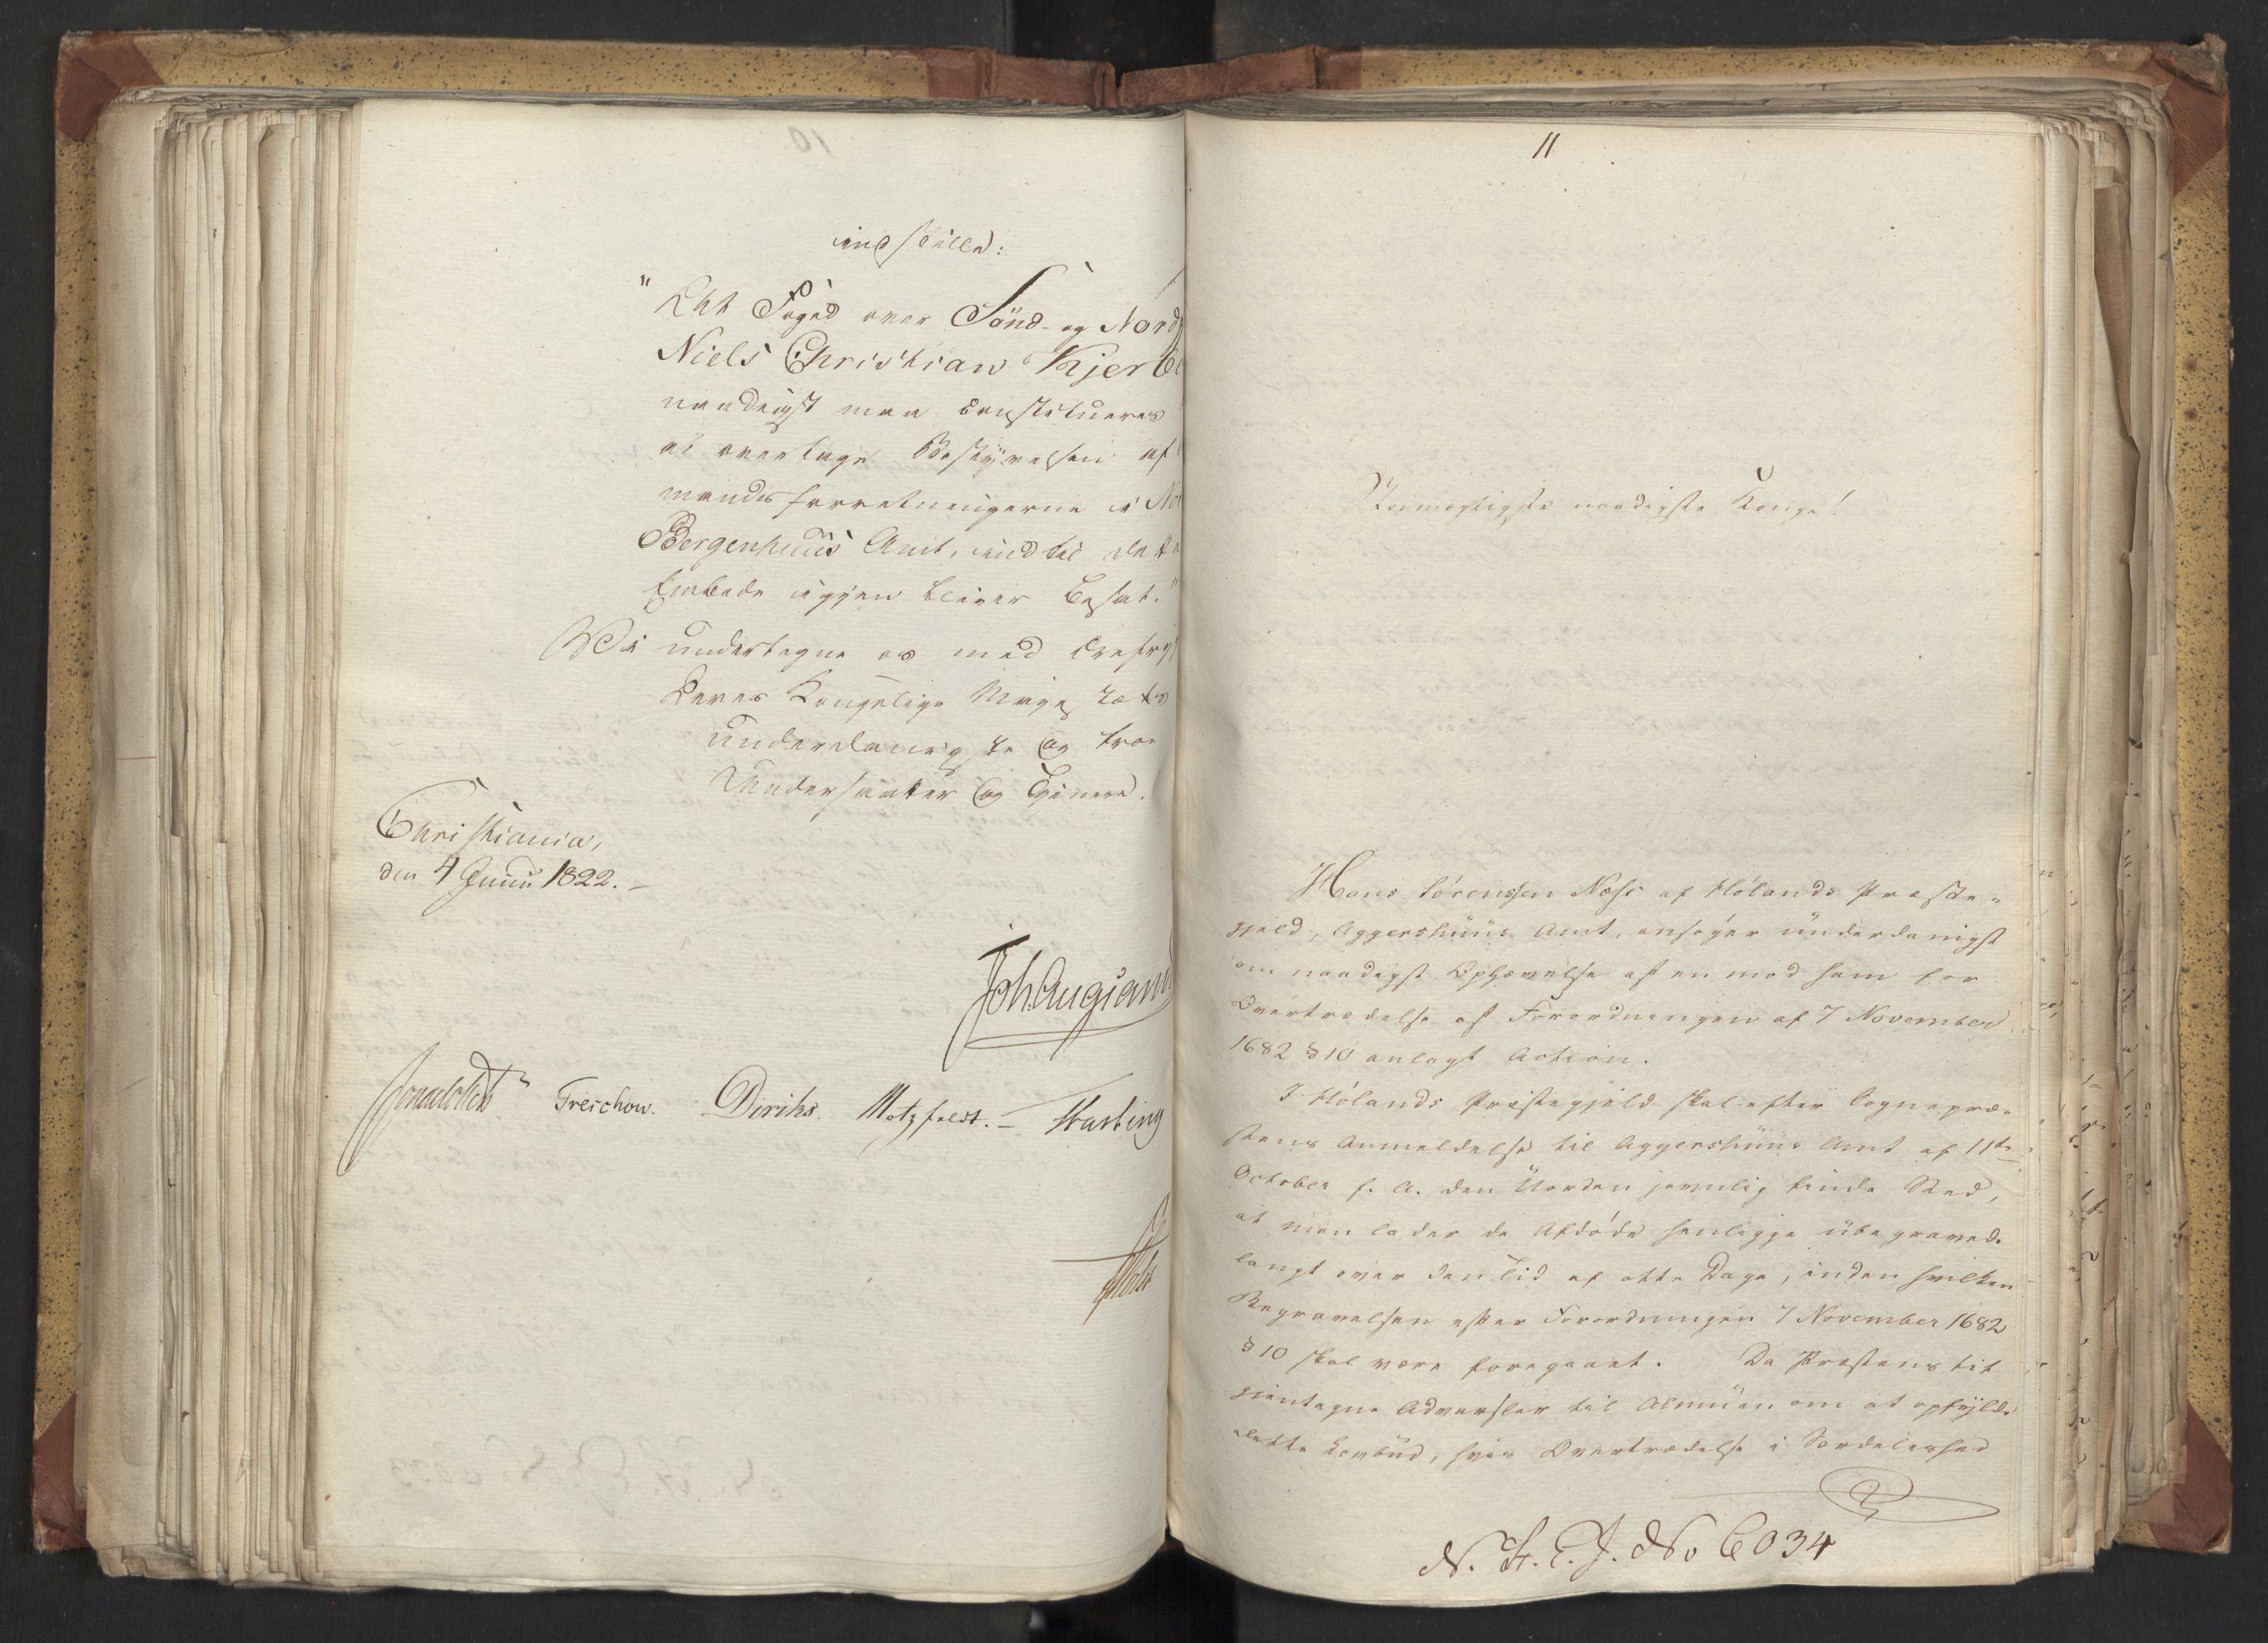 indstille:
"At Foged over Sönd- og Nord
Niels Christian Kjer
naadigst maa constitueres
at overtage Bestyrelsen af
mandsforretningerne i No
Bergenhuus Amt, indtil dette
Embede igjen bliver besat."
Vi undertegne os med Ærefry
Deres Kongelige Majestæts
underdanigste og troe
Undersaatter og Tjenere.
Christiania,
den 4 Junii 1822.
Joh. Aug Sand
Treschow. Diriks. Motzfeldt. –
Holst
11
Stormægtigste naadigste Konge!
Hans Sörenssen Næss af Hölands Præste-
gjeld, Aggershuus Amt, ansöger underdanigst
om naadigst Ophævelse af en mod ham for
Overtrædelse af Forordningen af 7 November
1682 § 10 anlagt Action.
I Hölands Præstegjeld skal efter Sognepræ-
stens Anmeldelse til Aggershuus Amt af 11te
October f. A. den Uorden jevnlig finde Sted,
at man lader de Afdöde henligge ubegravede
langt over den Tid af otte Dage, inden hvilken
Begravelsen efter Forordningen 7 November 1682
§ 10 skal være foregaaet. Da Præstens tit
gjentagne Advarsler til Almuen om at opfylde
dette Lovbud, hvis Overtrædelse i Særdeleshed
N. St. E. J. No 6034